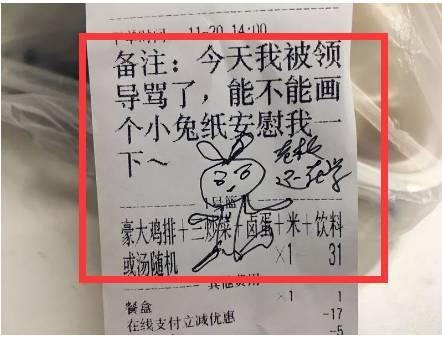 11-20 14:00
备注：今天我被领
导骂了，能不能画
个小兔纸安慰我一
下~
豪大鸡排+三炒菜+卤蛋+米+饮料
或汤随机 ×1 31
其他费用
餐盒 ×1 1
在线支付立减优惠 -17
-5